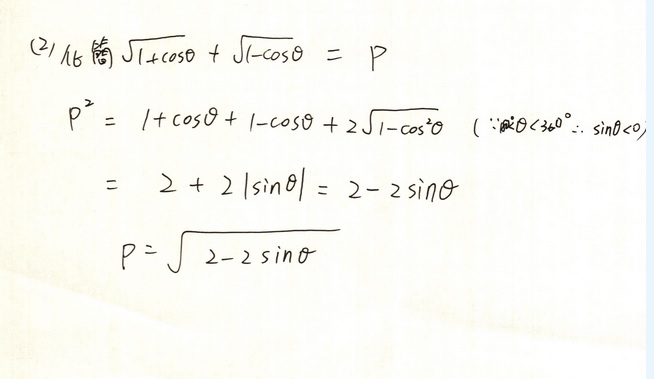 (2) 化簡 √(1+cosθ) + √(1-cosθ) = P
P² = 1+cosθ+1-cosθ+2√(1-cos²θ) (∵ θ<360° ∴ sinθ<0)
= 2+2|sinθ| = 2-2sinθ
P = √(2-2sinθ)